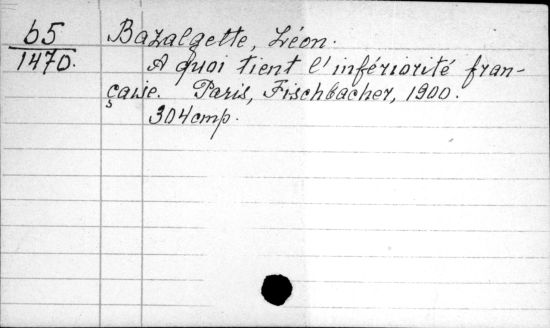 65 Bazalgette, Léon.
1470. A quoi tient l'infériorité fran-
çaise. Paris, Fischbacher, 1900.
304 cmp.